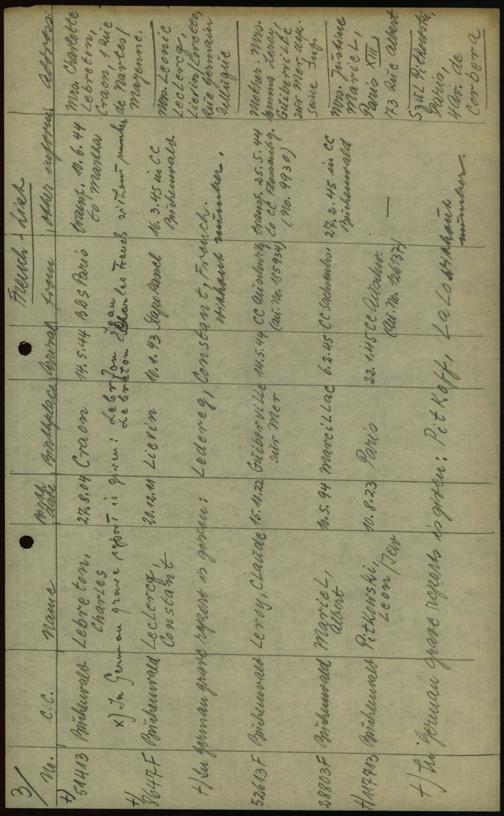 3/
French-List
No. C.C. Name Birth date Birthplace Arrival from other inform. Address
†) 51413 Buchenwald Lebreton, Charles 27.8.04 Craon 14.5.44 BDS Paris transf. 11.6.44 to
Mrs. Charlotte Lebreton, Craon, 1 Rue de Nantes/ Mayenne.
x) In German grave report is given: Lebreton Jean
Lebreton Charles French without number
†) Buchenwald Leclercq, Constant 20.12.11 Lievin 18.1.43 16.3.45 in CC Buchenwald
Mrs. Leonie Leclercq, Lievin, Loretto, Rue Germain
†) In German grave report is given: Ledereg, Constant, French.
without number.
52613 F Buchenwald Leroy, Claude 15.11.22 Guiberville sur Mer 14.5.44 CC Auschwitz (Au. No. 185934) transf. 25.5.44 to CC Flossenbg. (No. 9930)
Mother: Mrs. Emma Leroy, Guiberville sur Mer, dep. Seine Inf.
28803 F Buchenwald Mariel, Albert 10.5.94 Marcillac 6.2.45 CC Sachsenhs. 27.2.45 in CC Buchenwald
Mrs. Justine Mariel, Paris XIII 73 Rue Albert
†) 117913 Buchenwald Pitkowski, Leon/Jew 10.8.23 Paris 22.1.45 CC Auschw. —
Szul Pitkowski, Paris, 4 Av. de Corbera
†) In German grave reports is given: Pitkoff, LaLo without
number.